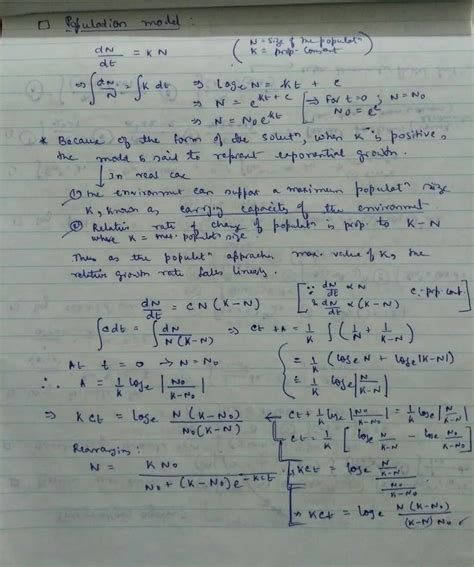 □ Population model :
dN/dt = KN ( N = size of the populatⁿ
K = prop. constant )
⇒ ∫ dN/N = ∫ K dt ⇒ logₑ N = kt + c
⇒ N = e^(kt + c) [ ⇒ For t=0 ; N = N₀
⇒ N = N₀e^(kt) N₀ = e^c
* Because of the form of the solutⁿ, when K is positive,
the model is said to represent exponential growth.
↓ In real case
① The environment can support a maximum populatⁿ size
K, known as carrying capacity of the environment
② Relative rate of change of populatⁿ is prop. to K-N
where K = max. populatⁿ size
Thus as the populatⁿ approaches max. value of K, the
relative growth rate falls linearly.
dN/dt = CN (K-N) [ ∵ dN/dt ∝ N C: prop. const.
& dN/dt ∝ (K-N) ]
∫ c dt = ∫ dN / N(K-N) ⇒ ct + A = 1/K ∫ ( 1/N + 1/K-N )
At t = 0 → N = N₀ = 1/K ( logₑ N + logₑ |K-N| )
∴ A = 1/K logₑ | N₀/K-N₀ | = 1/K logₑ | N/K-N |
⇒ Kct = logₑ N(K-N₀) / N₀(K-N) ← ct + 1/K logₑ | N₀/K-N₀ | = 1/K logₑ | N/K-N |
ct = 1/K [ logₑ N/K-N - logₑ N₀/K-N₀ ]
Rearranging :
N = K N₀ / N₀ + (K-N₀) e^(-Kct) ⇒ Kct = logₑ (N/K-N) / (N₀/K-N₀)
⇒ Kct = logₑ N(K-N₀) / (K-N) N₀